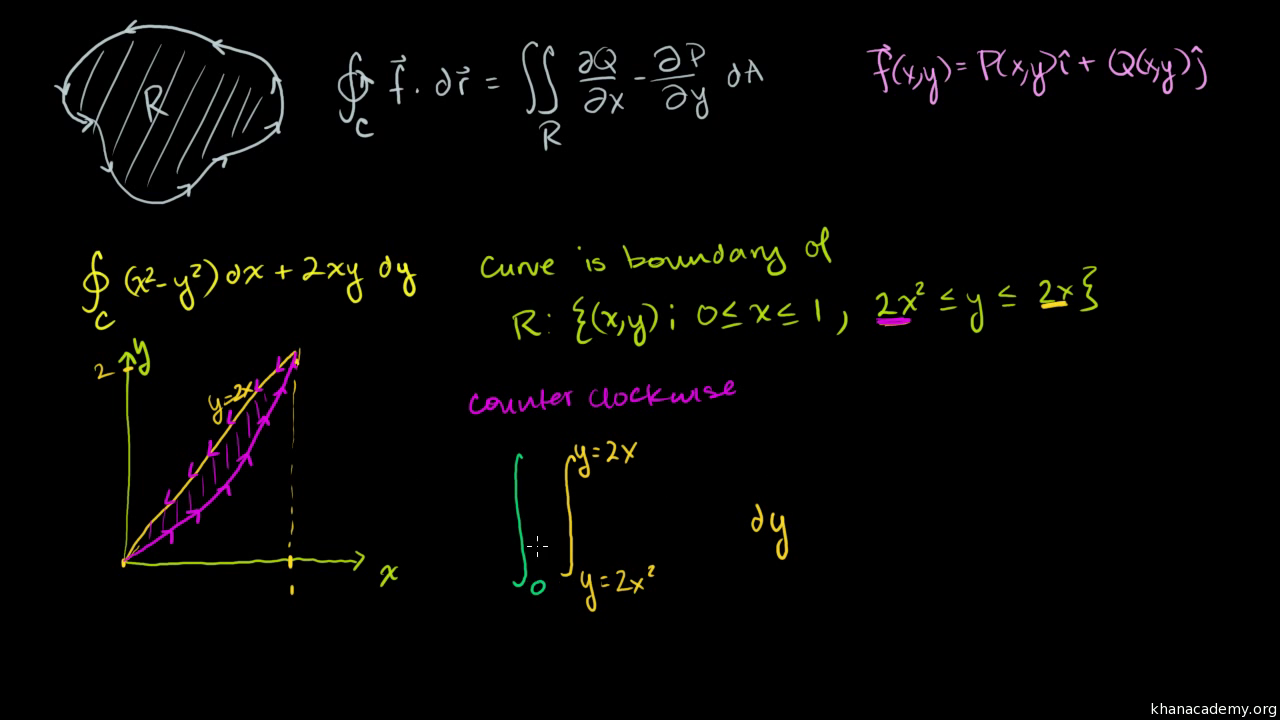 R
∮_C f⃗ · dr⃗ = ∬_R ∂Q/∂x - ∂P/∂y dA
f⃗(x,y) = P(x,y)î + Q(x,y)ĵ
∮_C (x² - y²) dx + 2xy dy
Curve is boundary of
R: {(x,y); 0 ≤ x ≤ 1, 2x² ≤ y ≤ 2x}
counter clockwise
y
2
y=2x
1
x
∫_0 ∫_{y=2x²}^{y=2x} dy
khanacademy.org